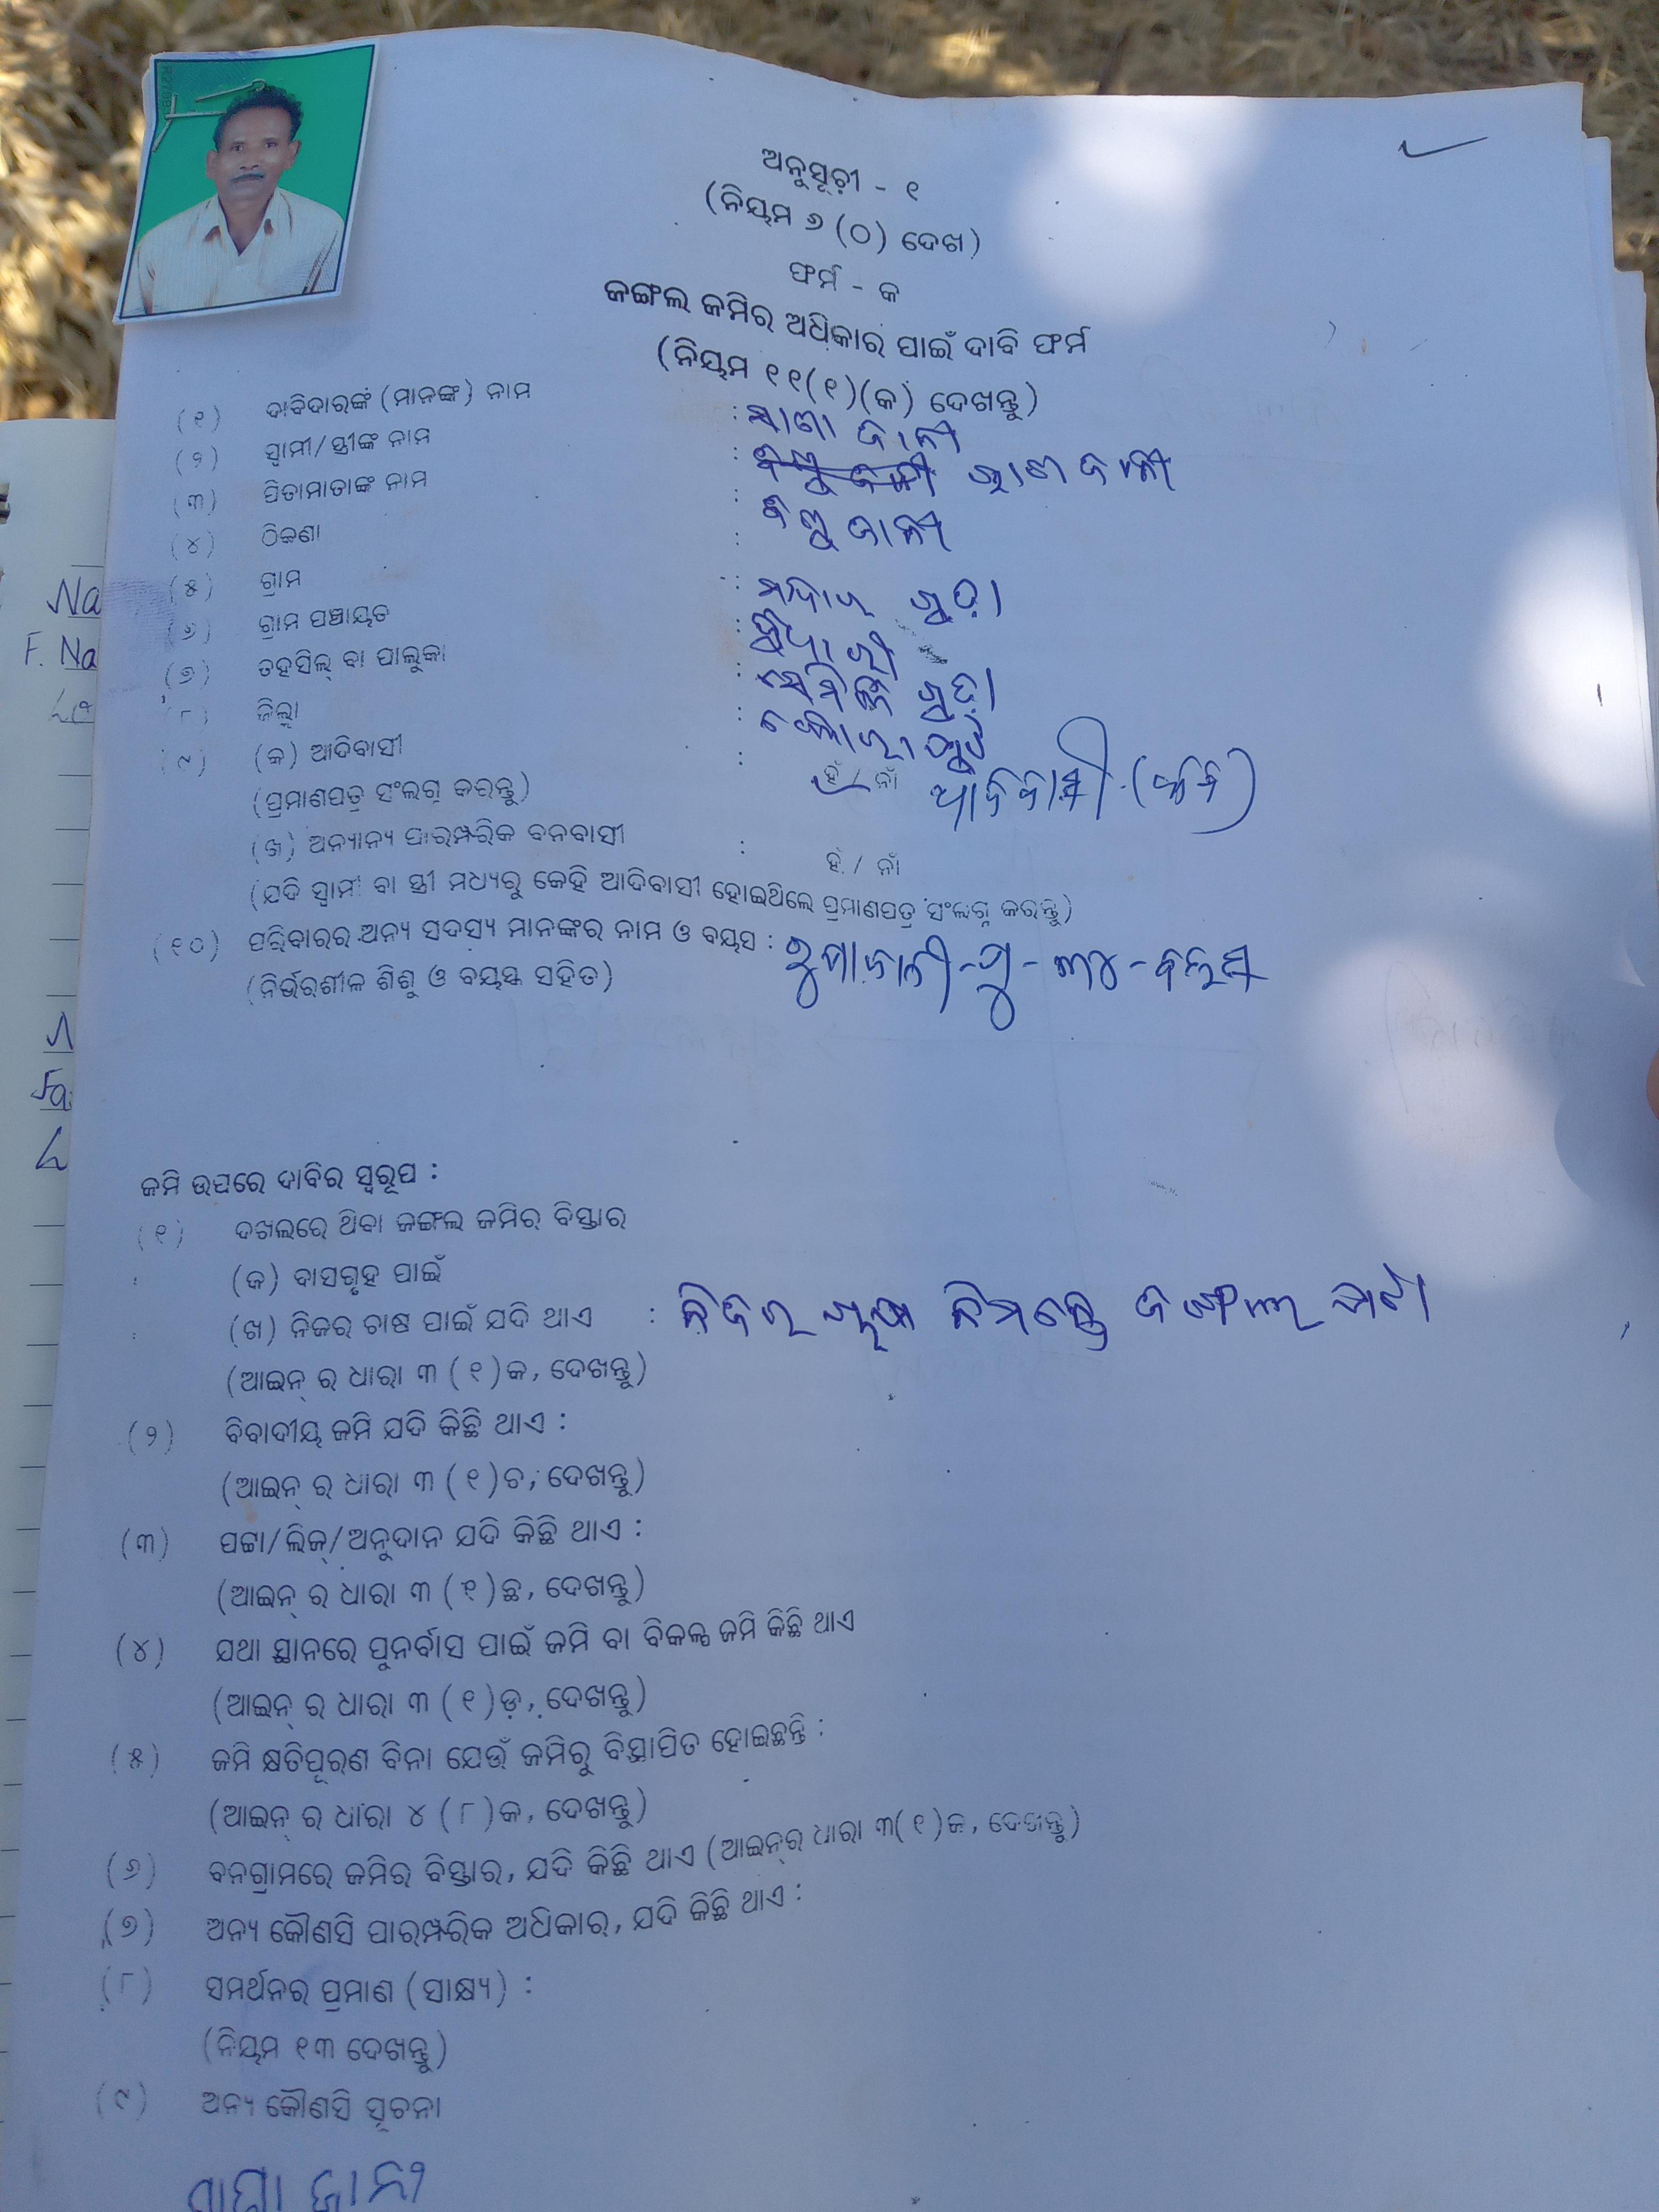 ଅନୁସୂଚୀ - ୧
(ନିୟମ ୬ (୦) ଦେଖ)
ଫର୍ମ - କ
ଜଙ୍ଗଲ ଜମିର ଅଧିକାର ପାଇଁ ଦାବି ଫର୍ମ
(ନିୟମ ୧୧(୧)(କ) ଦେଖନ୍ତୁ)
(୧) ଦାବିଦାରଙ୍କ (ମାନଙ୍କ) ନାମ : ଜାନୀ
(୨) ସ୍ୱାମୀ/ସ୍ତ୍ରୀଙ୍କ ନାମ : ଜାନୀ
(୩) ପିତାମାତାଙ୍କ ନାମ : ଜାନୀ
(୪) ଠିକଣା :
(୫) ଗ୍ରାମ : ଗୁଡ଼ା
(୬) ଗ୍ରାମ ପଞ୍ଚାୟତ :
(୭) ତହସିଲ୍ ବା ପାଲୁକା : ଗୁଡ଼ା
(୮) ଜିଲ୍ଲା : କୋରାପୁଟ
(୯) (କ) ଆଦିବାସୀ : ହଁ / ନାଁ ଆଦିବାସୀ
(ପ୍ରମାଣପତ୍ର ସଂଲଗ୍ନ କରନ୍ତୁ)
(ଖ) ଅନ୍ୟାନ୍ୟ ପାରମ୍ପରିକ ବନବାସୀ : ହଁ / ନାଁ
(ଯଦି ସ୍ୱାମୀ ବା ସ୍ତ୍ରୀ ମଧ୍ୟରୁ କେହି ଆଦିବାସୀ ହୋଇଥିଲେ ପ୍ରମାଣପତ୍ର ସଂଲଗ୍ନ କରନ୍ତୁ)
(୧୦) ପରିବାରର ଅନ୍ୟ ସଦସ୍ୟ ମାନଙ୍କର ନାମ ଓ ବୟସ :
(ନିର୍ଭରଶୀଳ ଶିଶୁ ଓ ବୟସ୍କ ସହିତ)
ଜମି ଉପରେ ଦାବିର ସ୍ୱରୂପ :
(୧) ଦଖଲରେ ଥିବା ଜଙ୍ଗଲ ଜମିର ବିସ୍ତାର
(କ) ବାସଗୃହ ପାଇଁ
(ଖ) ନିଜର ଚାଷ ପାଇଁ ଯଦି ଥାଏ : ନିଜର ନିମନ୍ତେ ଜଙ୍ଗଲ
(ଆଇନ୍ ର ଧାରା ୩ (୧)କ, ଦେଖନ୍ତୁ)
(୨) ବିବାଦୀୟ ଜମି ଯଦି କିଛି ଥାଏ :
(ଆଇନ୍ ର ଧାରା ୩ (୧)ଚ, ଦେଖନ୍ତୁ)
(୩) ପଟ୍ଟା/ଲିଜ୍/ଅନୁଦାନ ଯଦି କିଛି ଥାଏ :
(ଆଇନ୍ ର ଧାରା ୩ (୧)ଛ, ଦେଖନ୍ତୁ)
(୪) ଯଥା ସ୍ଥାନରେ ପୁନର୍ବାସ ପାଇଁ ଜମି ବା ବିକଳ୍ପ ଜମି କିଛି ଥାଏ
(ଆଇନ୍ ର ଧାରା ୩ (୧)ଡ଼, ଦେଖନ୍ତୁ)
(୫) ଜମି କ୍ଷତିପୂରଣ ବିନା ଯେଉଁ ଜମିରୁ ବିସ୍ଥାପିତ ହୋଇଛନ୍ତି :
(ଆଇନ୍ ର ଧାରା ୪ (୮)କ, ଦେଖନ୍ତୁ)
(୬) ବନଗ୍ରାମରେ ଜମିର ବିସ୍ତାର, ଯଦି କିଛି ଥାଏ (ଆଇନ୍‌ର ଧାରା ୩(୧)ଜ, ଦେଖନ୍ତୁ)
(୭) ଅନ୍ୟ କୌଣସି ପାରମ୍ପରିକ ଅଧିକାର, ଯଦି କିଛି ଥାଏ :
(୮) ସମର୍ଥନର ପ୍ରମାଣ (ସାକ୍ଷ୍ୟ) :
(ନିୟମ ୧୩ ଦେଖନ୍ତୁ)
(୯) ଅନ୍ୟ କୌଣସି ସୂଚନା
Na
F. Na